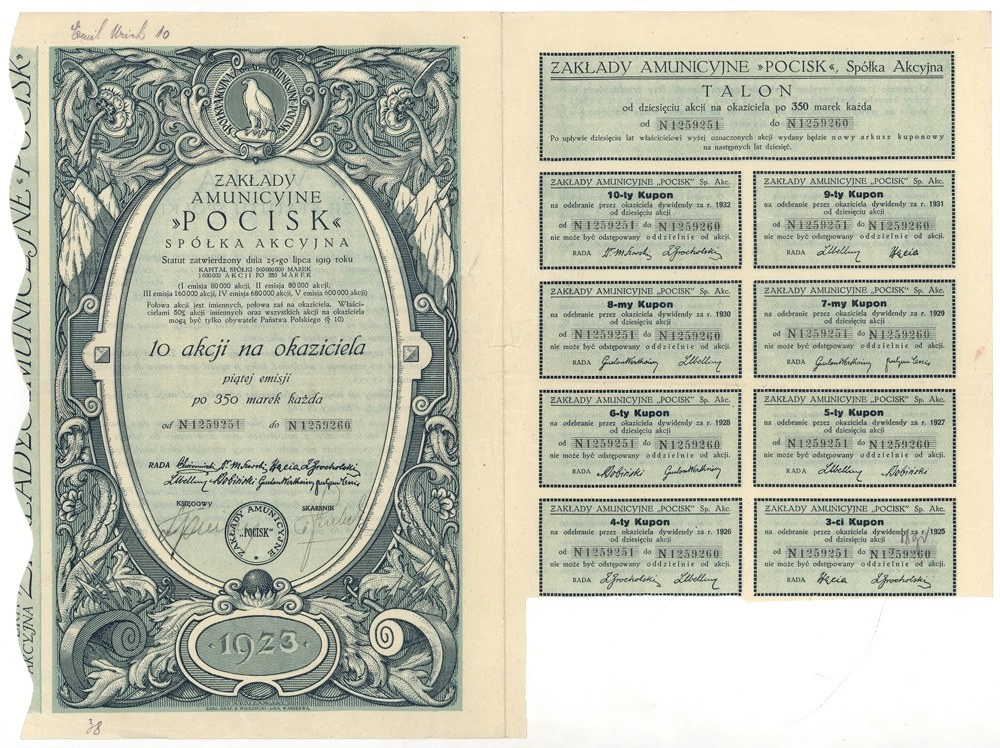 Emil
10
ZAKŁADY
AMUNICYJNE
»POCISK«
SPÓŁKA AKCYJNA
Statut zatwierdzony dnia 25-go lipca 1919 roku
KAPITAŁ SPÓŁKI 560000000 MAREK
1 600 000 AKCJI PO 350 MAREK
(I emisja 80000 akcji, II emisja 80000 akcji,
III emisja 160000 akcji, IV emisja 680000 akcji, V emisja 600000 akcji)
Połowa akcji jest imiennych, połowa zaś na okaziciela. Właści-
cielami 50% akcji imiennych oraz wszystkich akcji na okaziciela
mogą być tylko obywatele Państwa Polskiego (§ 10)
10 akcji na okaziciela
piątej emisji
po 350 marek każda
od N1259251 do N1259260
RADA
KSIĘGOWY SKARBNIK
ZAKŁADY AMUNICYJNE
„POCISK"
1923
38
ZAKŁADY AMUNICYJNE »POCISK«, Spółka Akcyjna
TALON
od dziesięciu akcji na okaziciela po 350 marek każda
od N1259251 do N1259260
Po upływie dziesięciu lat właścicielowi wyżej oznaczonych akcji wydany będzie nowy arkusz kuponowy
na następnych lat dziesięć.
ZAKŁADY AMUNICYJNE „POCISK" Sp. Akc.
10-ty Kupon
na odebranie przez okaziciela dywidendy za r. 1932
od dziesięciu akcji
od N1259251 do N1259260
nie może być odstępowany oddzielnie od akcji.
RADA
ZAKŁADY AMUNICYJNE „POCISK" Sp. Akc.
9-ty Kupon
na odebranie przez okaziciela dywidendy za r. 1931
od dziesięciu akcji
od N1259251 do N1259260
nie może być odstępowany oddzielnie od akcji.
RADA
ZAKŁADY AMUNICYJNE „POCISK" Sp. Akc.
8-my Kupon
na odebranie przez okaziciela dywidendy za r. 1930
od dziesięciu akcji
od N1259251 do N1259260
nie może być odstępowany oddzielnie od akcji.
RADA
ZAKŁADY AMUNICYJNE „POCISK" Sp. Akc.
7-my Kupon
na odebranie przez okaziciela dywidendy za r. 1929
od dziesięciu akcji
od N1259251 do N1259260
nie może być odstępowany oddzielnie od akcji.
RADA
ZAKŁADY AMUNICYJNE „POCISK" Sp. Akc.
6-ty Kupon
na odebranie przez okaziciela dywidendy za r. 1928
od dziesięciu akcji
od N1259251 do N1259260
nie może być odstępowany oddzielnie od akcji.
RADA
ZAKŁADY AMUNICYJNE „POCISK" Sp. Akc.
5-ty Kupon
na odebranie przez okaziciela dywidendy za r. 1927
od dziesięciu akcji
od N1259251 do N1259260
nie może być odstępowany oddzielnie od akcji.
RADA
ZAKŁADY AMUNICYJNE „POCISK" Sp. Akc.
4-ty Kupon
na odebranie przez okaziciela dywidendy za r. 1926
od dziesięciu akcji
od N1259251 do N1259260
nie może być odstępowany oddzielnie od akcji.
RADA
ZAKŁADY AMUNICYJNE „POCISK" Sp. Akc.
3-ci Kupon
na odebranie przez okaziciela dywidendy za r. 1925
od dziesięciu akcji
od N1259251 do N1259260
nie może być odstępowany oddzielnie od akcji.
RADA